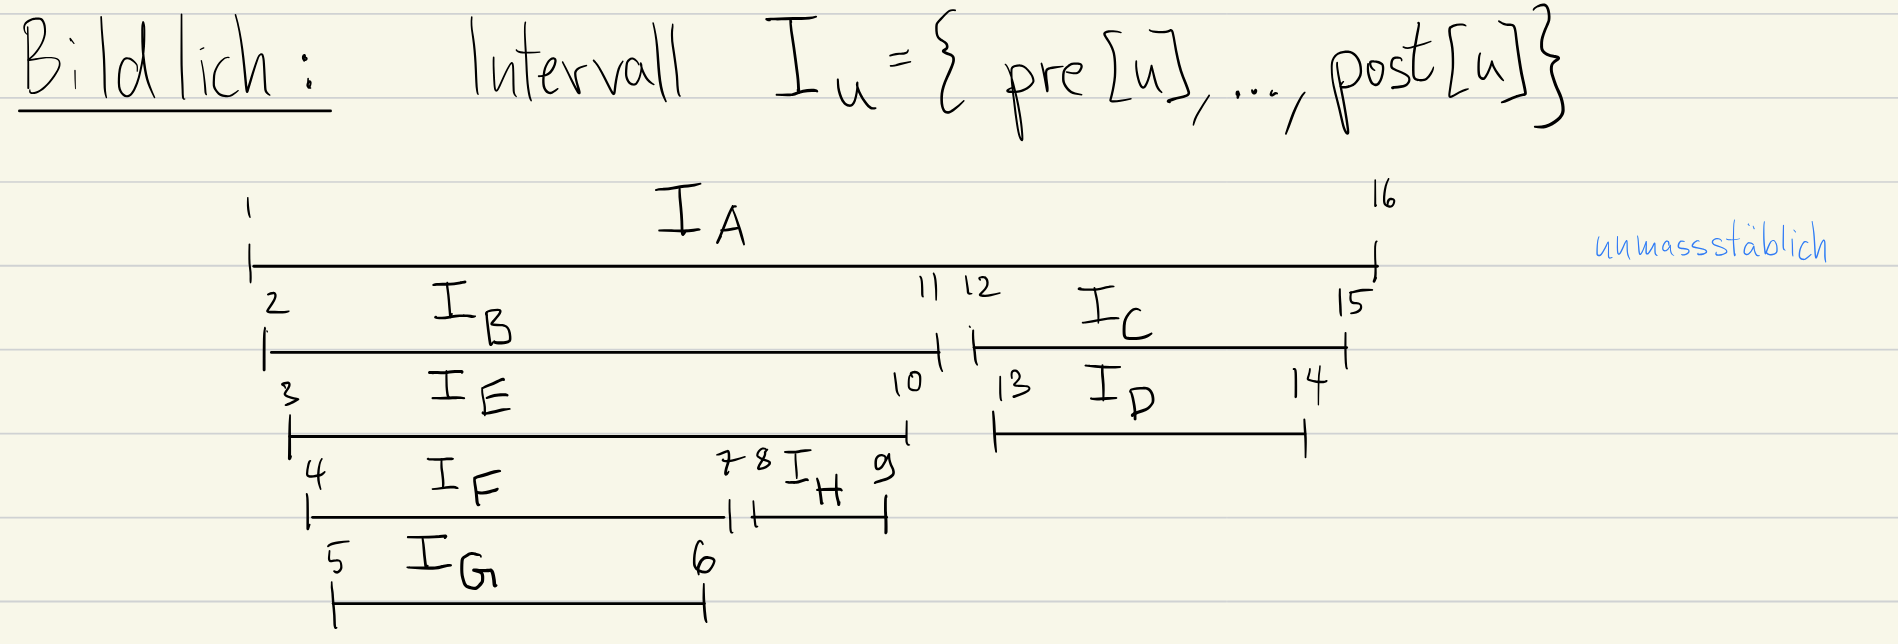 Bildlich: Intervall I_u = { pre[u], ..., post[u] }
1 I_A 16
unmassstäblich
2 I_B 11 12 I_C 15
3 I_E 10 13 I_D 14
4 I_F 7 8 I_H 9
5 I_G 6